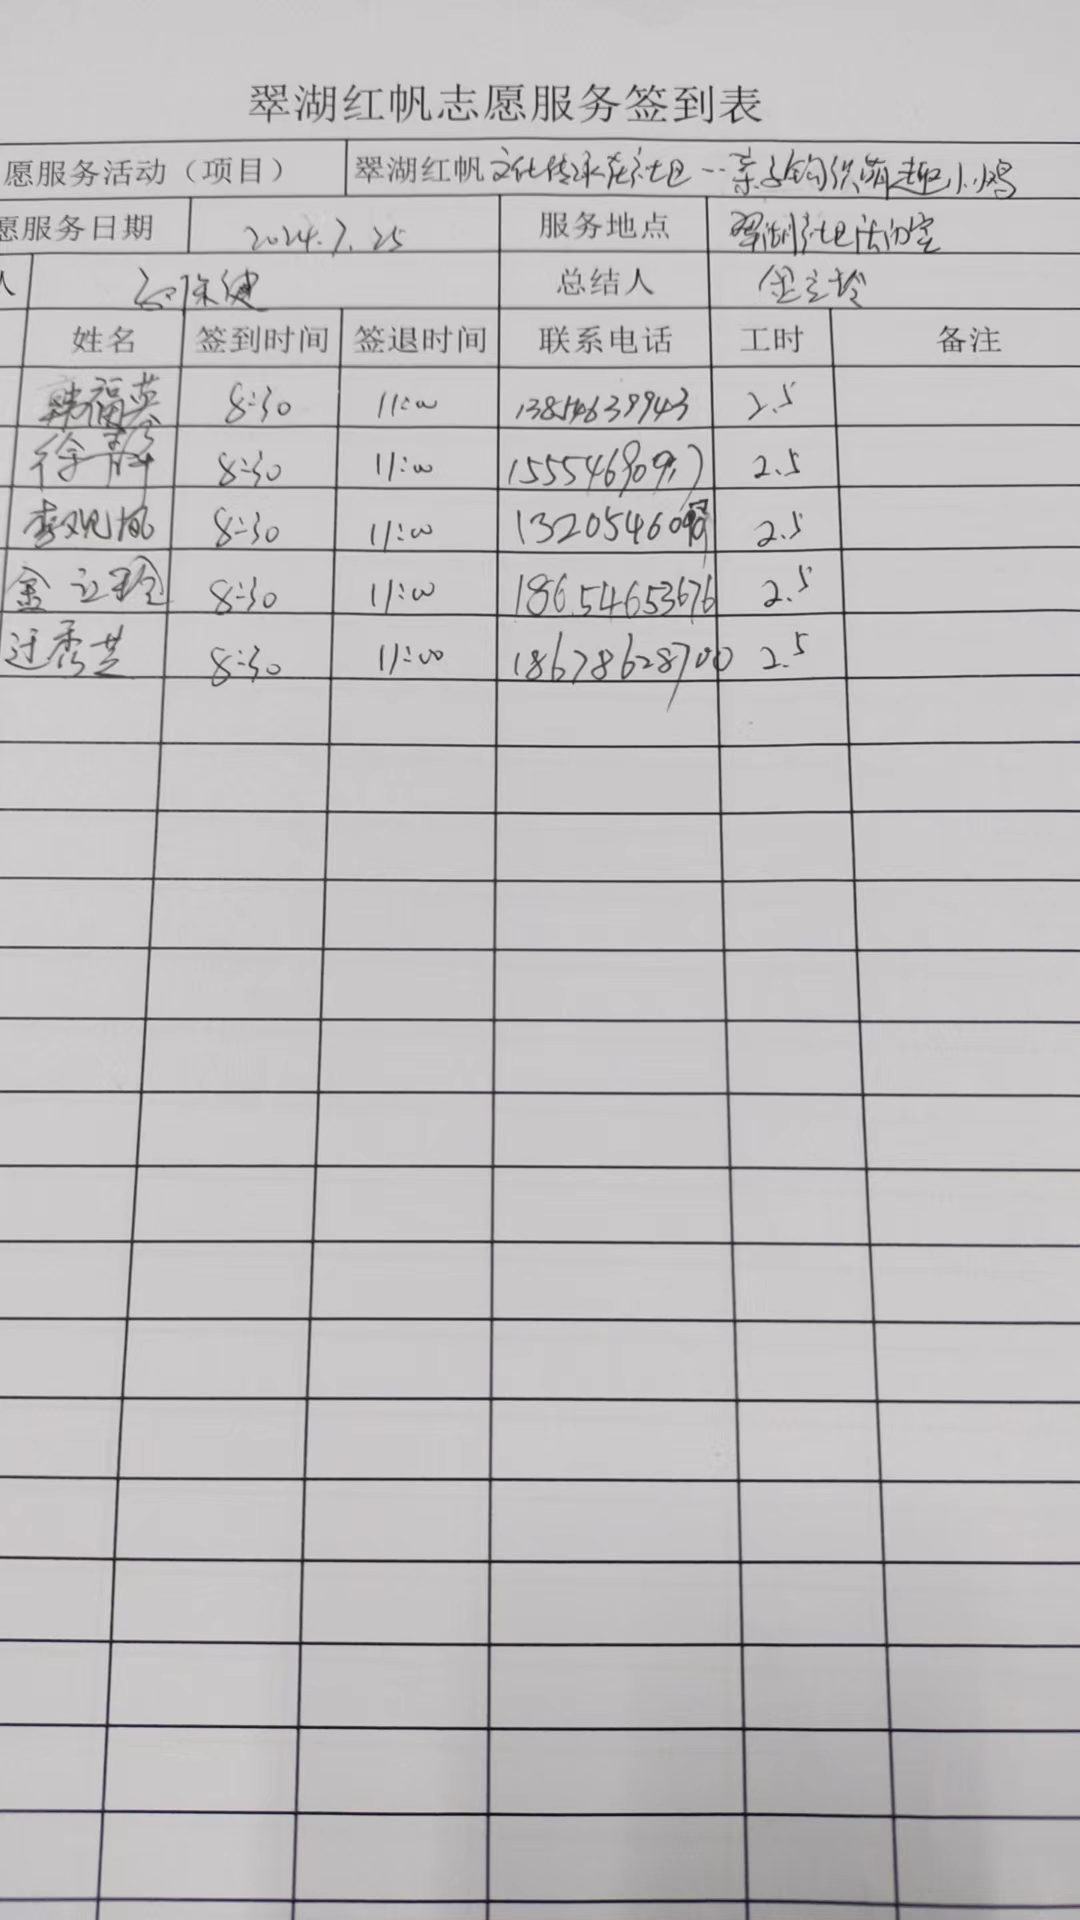 翠湖红帆志愿服务签到表
愿服务活动（项目） 翠湖红帆文化传承在社区--亲子钩织萌趣小鸡
愿服务日期 2024.7.25 服务地点 翠湖社区活动室
人 总结人 金立玲
姓名 签到时间 签退时间 联系电话 工时 备注
韩福英 8:30 11:00 13854639943 2.5
徐静 8:30 11:00 2.5
李观凤 8:30 11:00 2.5
金立玲 8:30 11:00 18654653676 2.5
秀芝 8:30 11:00 18678628700 2.5